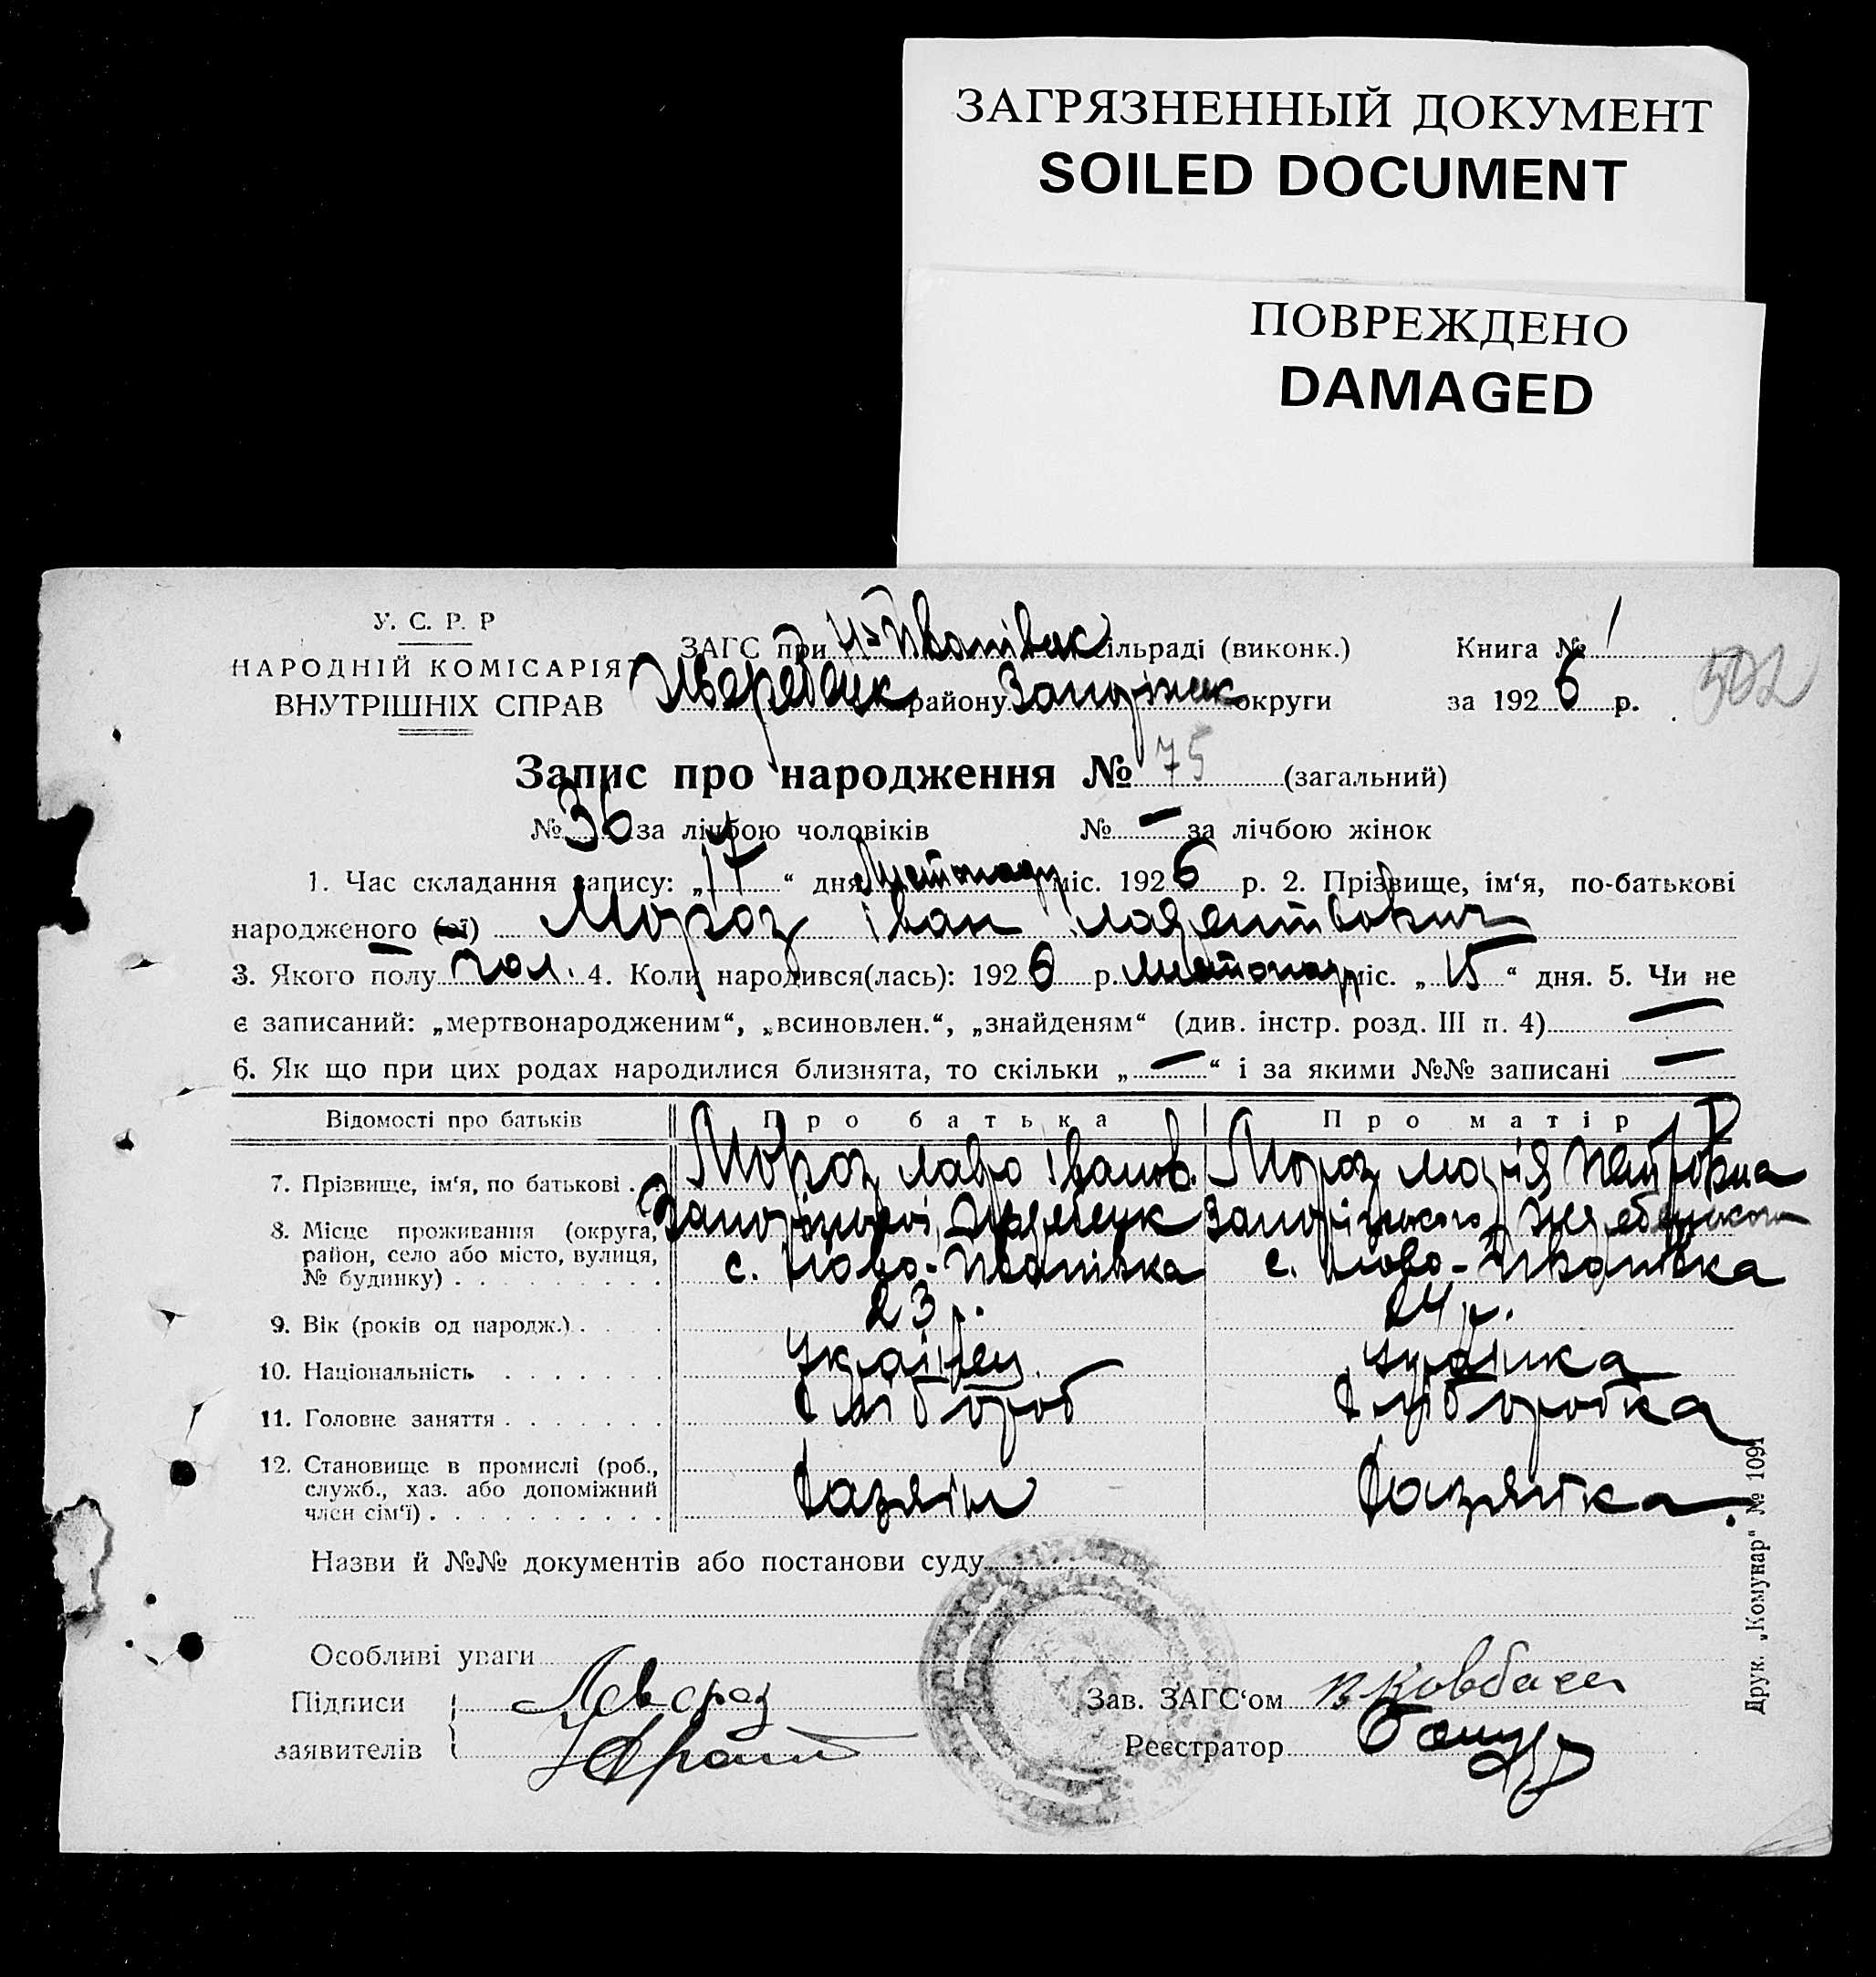 ЗАГРЯЗНЕННЫЙ ДОКУМЕНТ
SOILED DOCUMENT
ПОВРЕЖДЕНО
DAMAGED
У. С. Р. Р
НАРОДНІЙ КОМІСАРІЯТ
ВНУТРІШНІХ СПРАВ
ЗАГС при Н-Іванівск сільраді (виконк.) Книга № 1
району Запоріжск округи за 1926 р. 502
Запис про народження № 75 (загальний)
№ 36 за лічбою чоловіків № — за лічбою жінок
1. Час складання запису: „17“ дня Листопаду міс. 1926 р. 2. Прізвище, ім‘я, по-батькові
народженого (ої) Мороз Іван
3. Якого полу чол. 4. Коли народився(лась): 1926 р. листопад міс. „15“ дня. 5. Чи не
є записаний: „мертвонародженим“, „всиновлен.“, „знайденям“ (див. інстр. розд. III п. 4) —
6. Як що при цих родах народилися близнята, то скільки „—“ і за якими №№ записані —
Відомості про батьків Про батька Про матір
7. Прізвище, ім‘я, по батькові . . Мороз Лавро Іванов. Мороз Марія Петровна
8. Місце проживання (округа, район, село або місто, вулиця, № будинку) . . . . . . . . . .
с. Ново-Іванівка с. Ново-Іванівка
9. Вік (років од народж.) . . . . 23 р. 24 р.
10. Національність . . . . . . . Українец українка
11. Головне заняття . . . . . . . хлібороб хліборобка
12. Становище в промислі (роб., служб., хаз. або допоміжний член сім‘ї) . . . . . . . . . . хазяїн хазяйка
Назви й №№ документів або постанови суду
Особливі уваги
Підписи
заявителів
Мороз
Зав. ЗАГС‘ом
Реєстратор
Друк. „Комунар“ № 1091